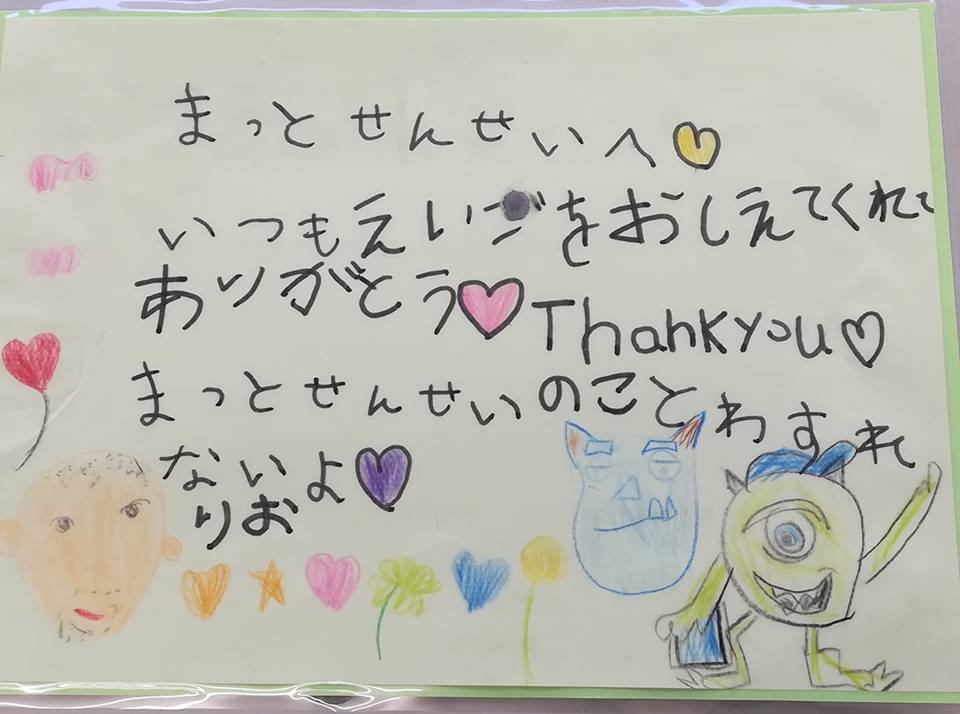 まっと せんせいへ
いつも えいごを おしえてくれて
ありがとう Thank you
まっと せんせいの こと わすれ
ないよ
りお